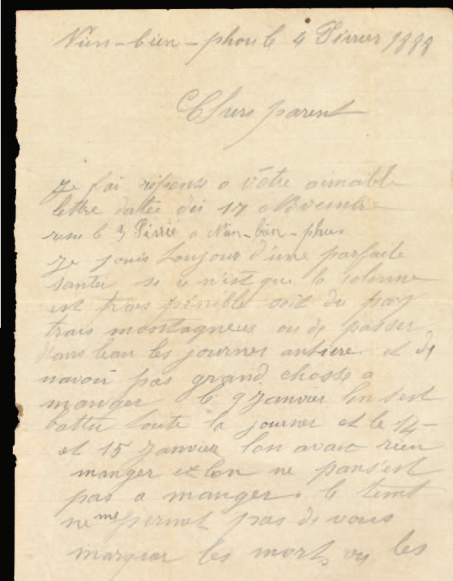 Nien-bien-phou le 4 Février 1888
Chers parent
Je fai réponse a vôtre aimable
lettre dattée du 17 Novembre
resu le 3 Férrié a Nien-bien-phou
Je jouis toujour d'une parfaite
santée si ce n'est que la colonne
est trais pénible soit du pay
trais montagneux ou de passer
dans leau les journes antiere et de
navoir pas grand chosse a
manger le 9 Janvier lon sest
battu toute la journer et le 14-
et 15 Janvier lon avait rien
manger et lon ne pansent
pas a manger le temt
ne me permet pas de vous
marquer les morts ou les